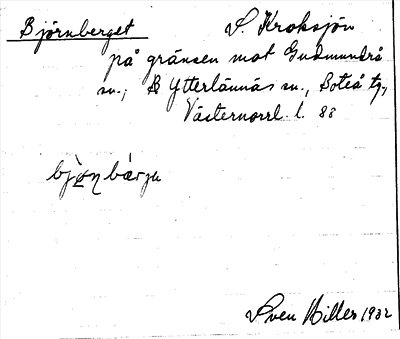 Björnberget S. Kroksjön
på gränsen mot Gudmundrå
sn., B Ytterlännäs sn., Boteå tg.,
Västernorrl. l. 88
bjø̀ɳbærjə
Sven Hilles 1932